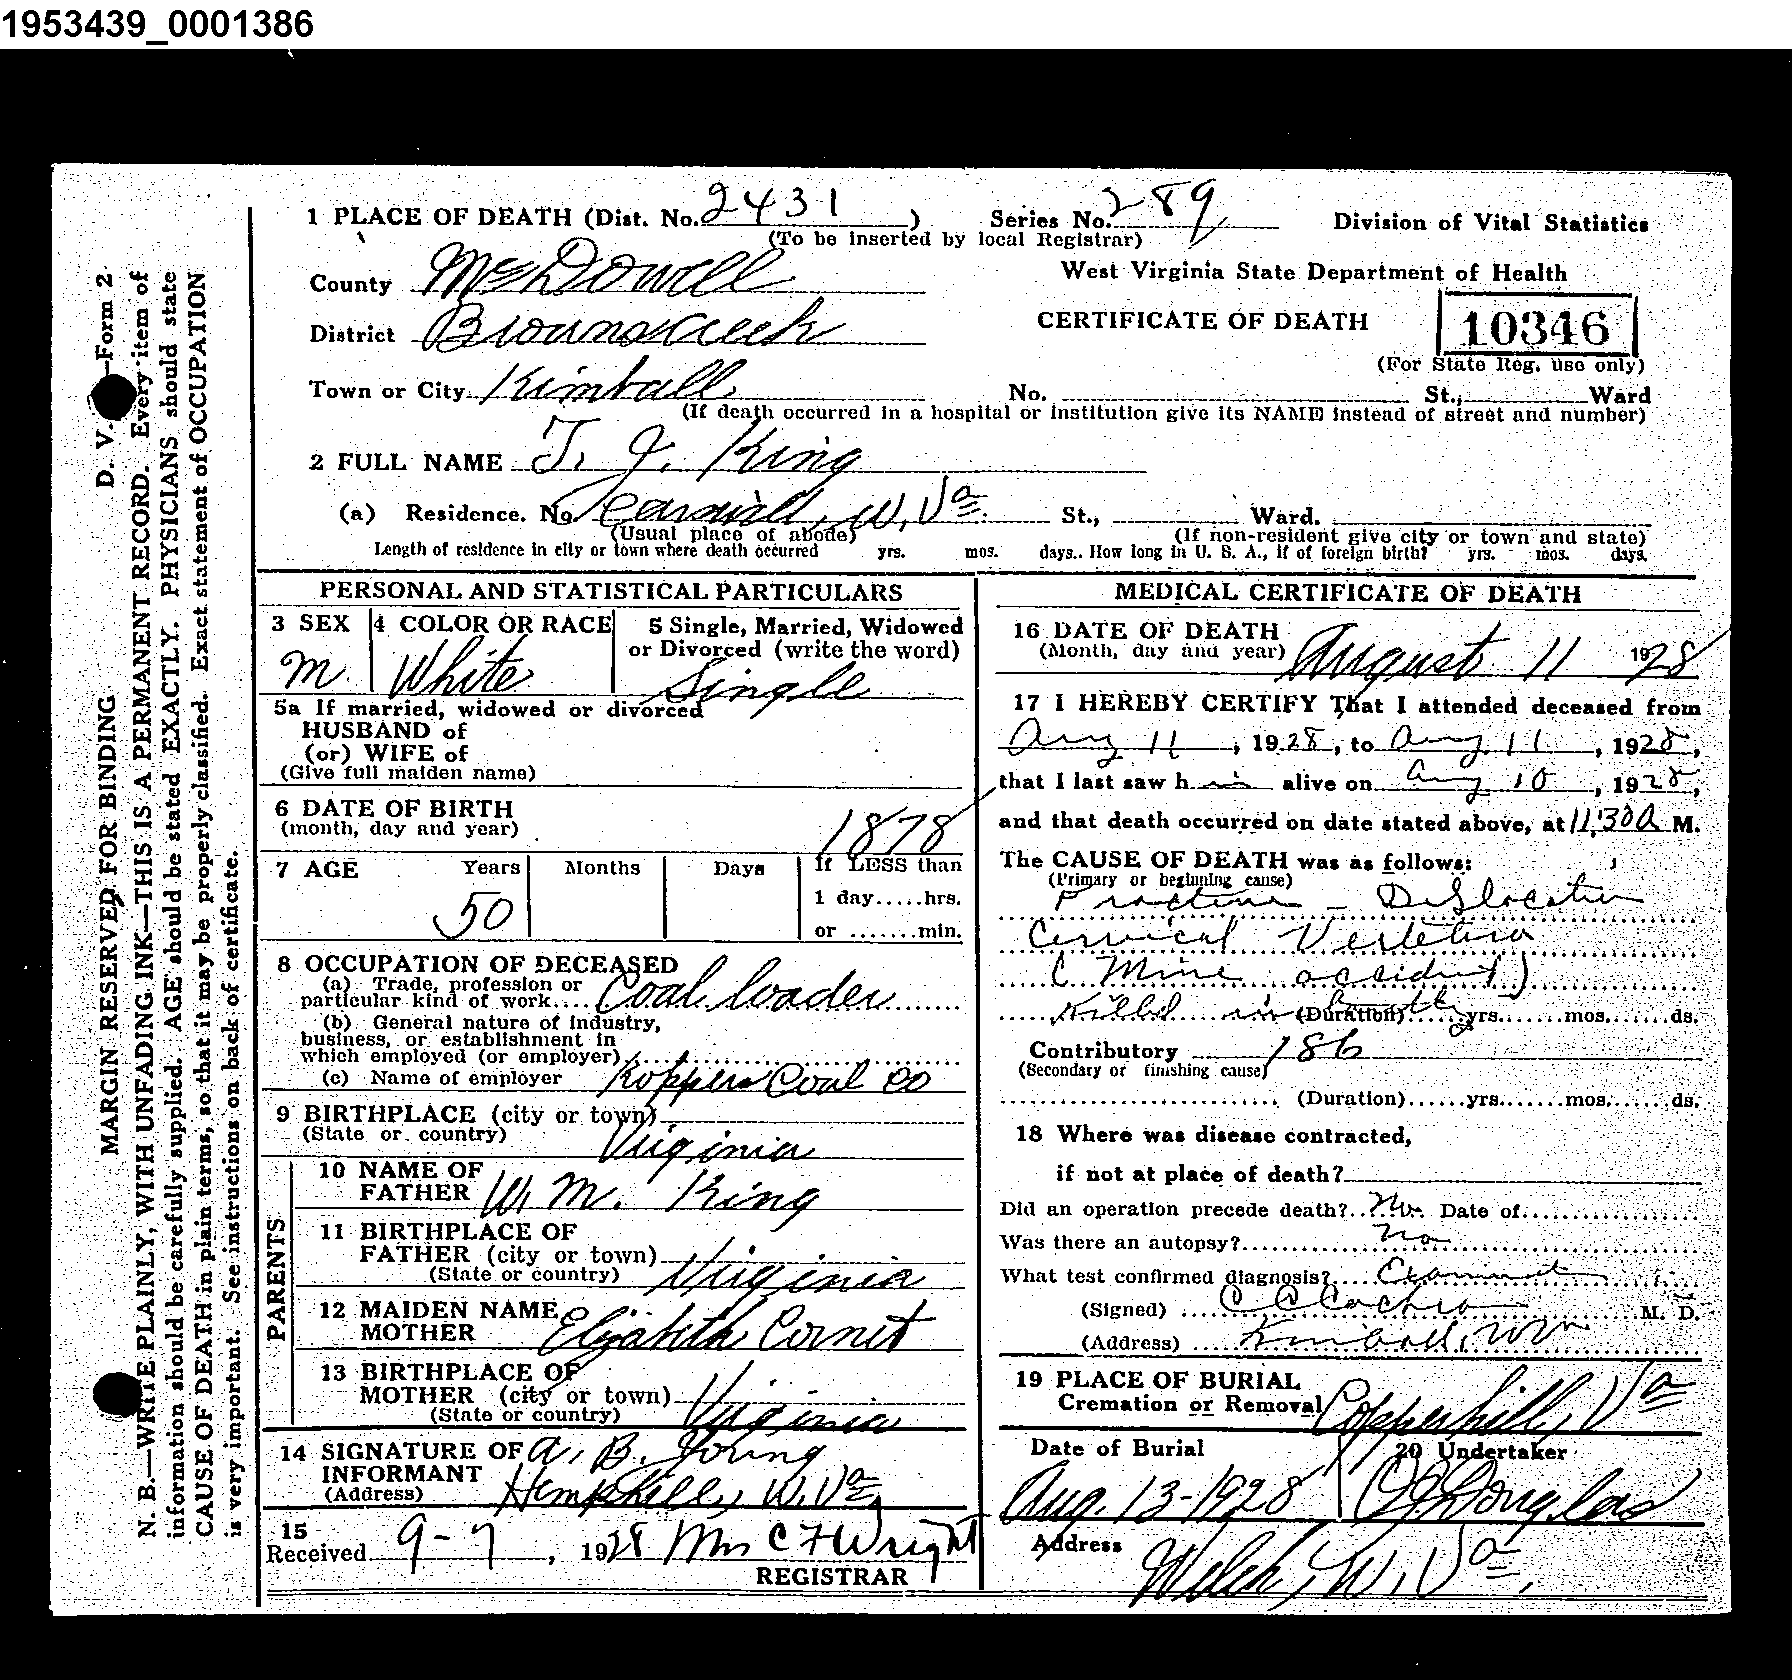 1953439_0001386
1 PLACE OF DEATH (Dist. No. 2431 ) Series No. 289 Division of Vital Statistics
(To be inserted by local Registrar)
County McDowell West Virginia State Department of Health
District Brownscreek CERTIFICATE OF DEATH 10346
(For State Reg. use only)
Town or City Kimball No. St., Ward
(If death occurred in a hospital or institution give its NAME instead of street and number)
2 FULL NAME T. J. King
(a) Residence. No. W. Va. St., Ward.
(Usual place of abode) (If non-resident give city or town and state)
Length of residence in city or town where death occurred yrs. mos. days. How long in U. S. A., if of foreign birth? yrs. mos. days.
PERSONAL AND STATISTICAL PARTICULARS
3 SEX 4 COLOR OR RACE 5 Single, Married, Widowed
or Divorced (write the word)
M. White Single
5a If married, widowed or divorced
HUSBAND of
(or) WIFE of
(Give full maiden name)
6 DATE OF BIRTH
(month, day and year) 1878
7 AGE Years Months Days If LESS than
1 day.....hrs.
50 or .......min.
8 OCCUPATION OF DECEASED
(a) Trade, profession or
particular kind of work.... Coal loader
(b) General nature of industry,
business, or establishment in
which employed (or employer)
(c) Name of employer Koppers Coal Co
9 BIRTHPLACE (city or town)
(State or country) Virginia
PARENTS
10 NAME OF
FATHER W. M. King
11 BIRTHPLACE OF
FATHER (city or town)
(State or country) Virginia
12 MAIDEN NAME
MOTHER Elizabeth Cornet
13 BIRTHPLACE OF
MOTHER (city or town)
(State or country) Virginia
14 SIGNATURE OF A. B. Young
INFORMANT
(Address) Hemphill, W. Va.
15
Received 9-7, 1928 Mrs C F Wright
REGISTRAR
MEDICAL CERTIFICATE OF DEATH
16 DATE OF DEATH
(Month, day and year) August 11 1928
17 I HEREBY CERTIFY That I attended deceased from
Aug 11, 1928, to Aug. 11, 1928,
that I last saw h im alive on Aug 10, 1928,
and that death occurred on date stated above, at 11:30 a M.
The CAUSE OF DEATH was as follows:
(Primary or beginning cause)
Fracture - Dislocation
Cervical Vertebra
(Mine accident)
Killed instantly (Duration)......yrs.......mos.......ds.
Contributory 186
(Secondary or finishing cause)
(Duration)......yrs.......mos.......ds.
18 Where was disease contracted,
if not at place of death?
Did an operation precede death? No. Date of
Was there an autopsy? No
What test confirmed diagnosis?
(Signed) C A Cochran M. D.
(Address) Kimball, W Va
19 PLACE OF BURIAL
Cremation or Removal Copperhill, Va
Date of Burial 20 Undertaker
Aug. 13-1928 Douglas
Address
Welch, W. Va.
D. V. —Form 2
MARGIN RESERVED FOR BINDING
N. B.—WRITE PLAINLY, WITH UNFADING INK—THIS IS A PERMANENT RECORD. Every item of
information should be carefully supplied. AGE should be stated EXACTLY. PHYSICIANS should state
CAUSE OF DEATH in plain terms, so that it may be properly classified. Exact statement of OCCUPATION
is very important. See instructions on back of certificate.